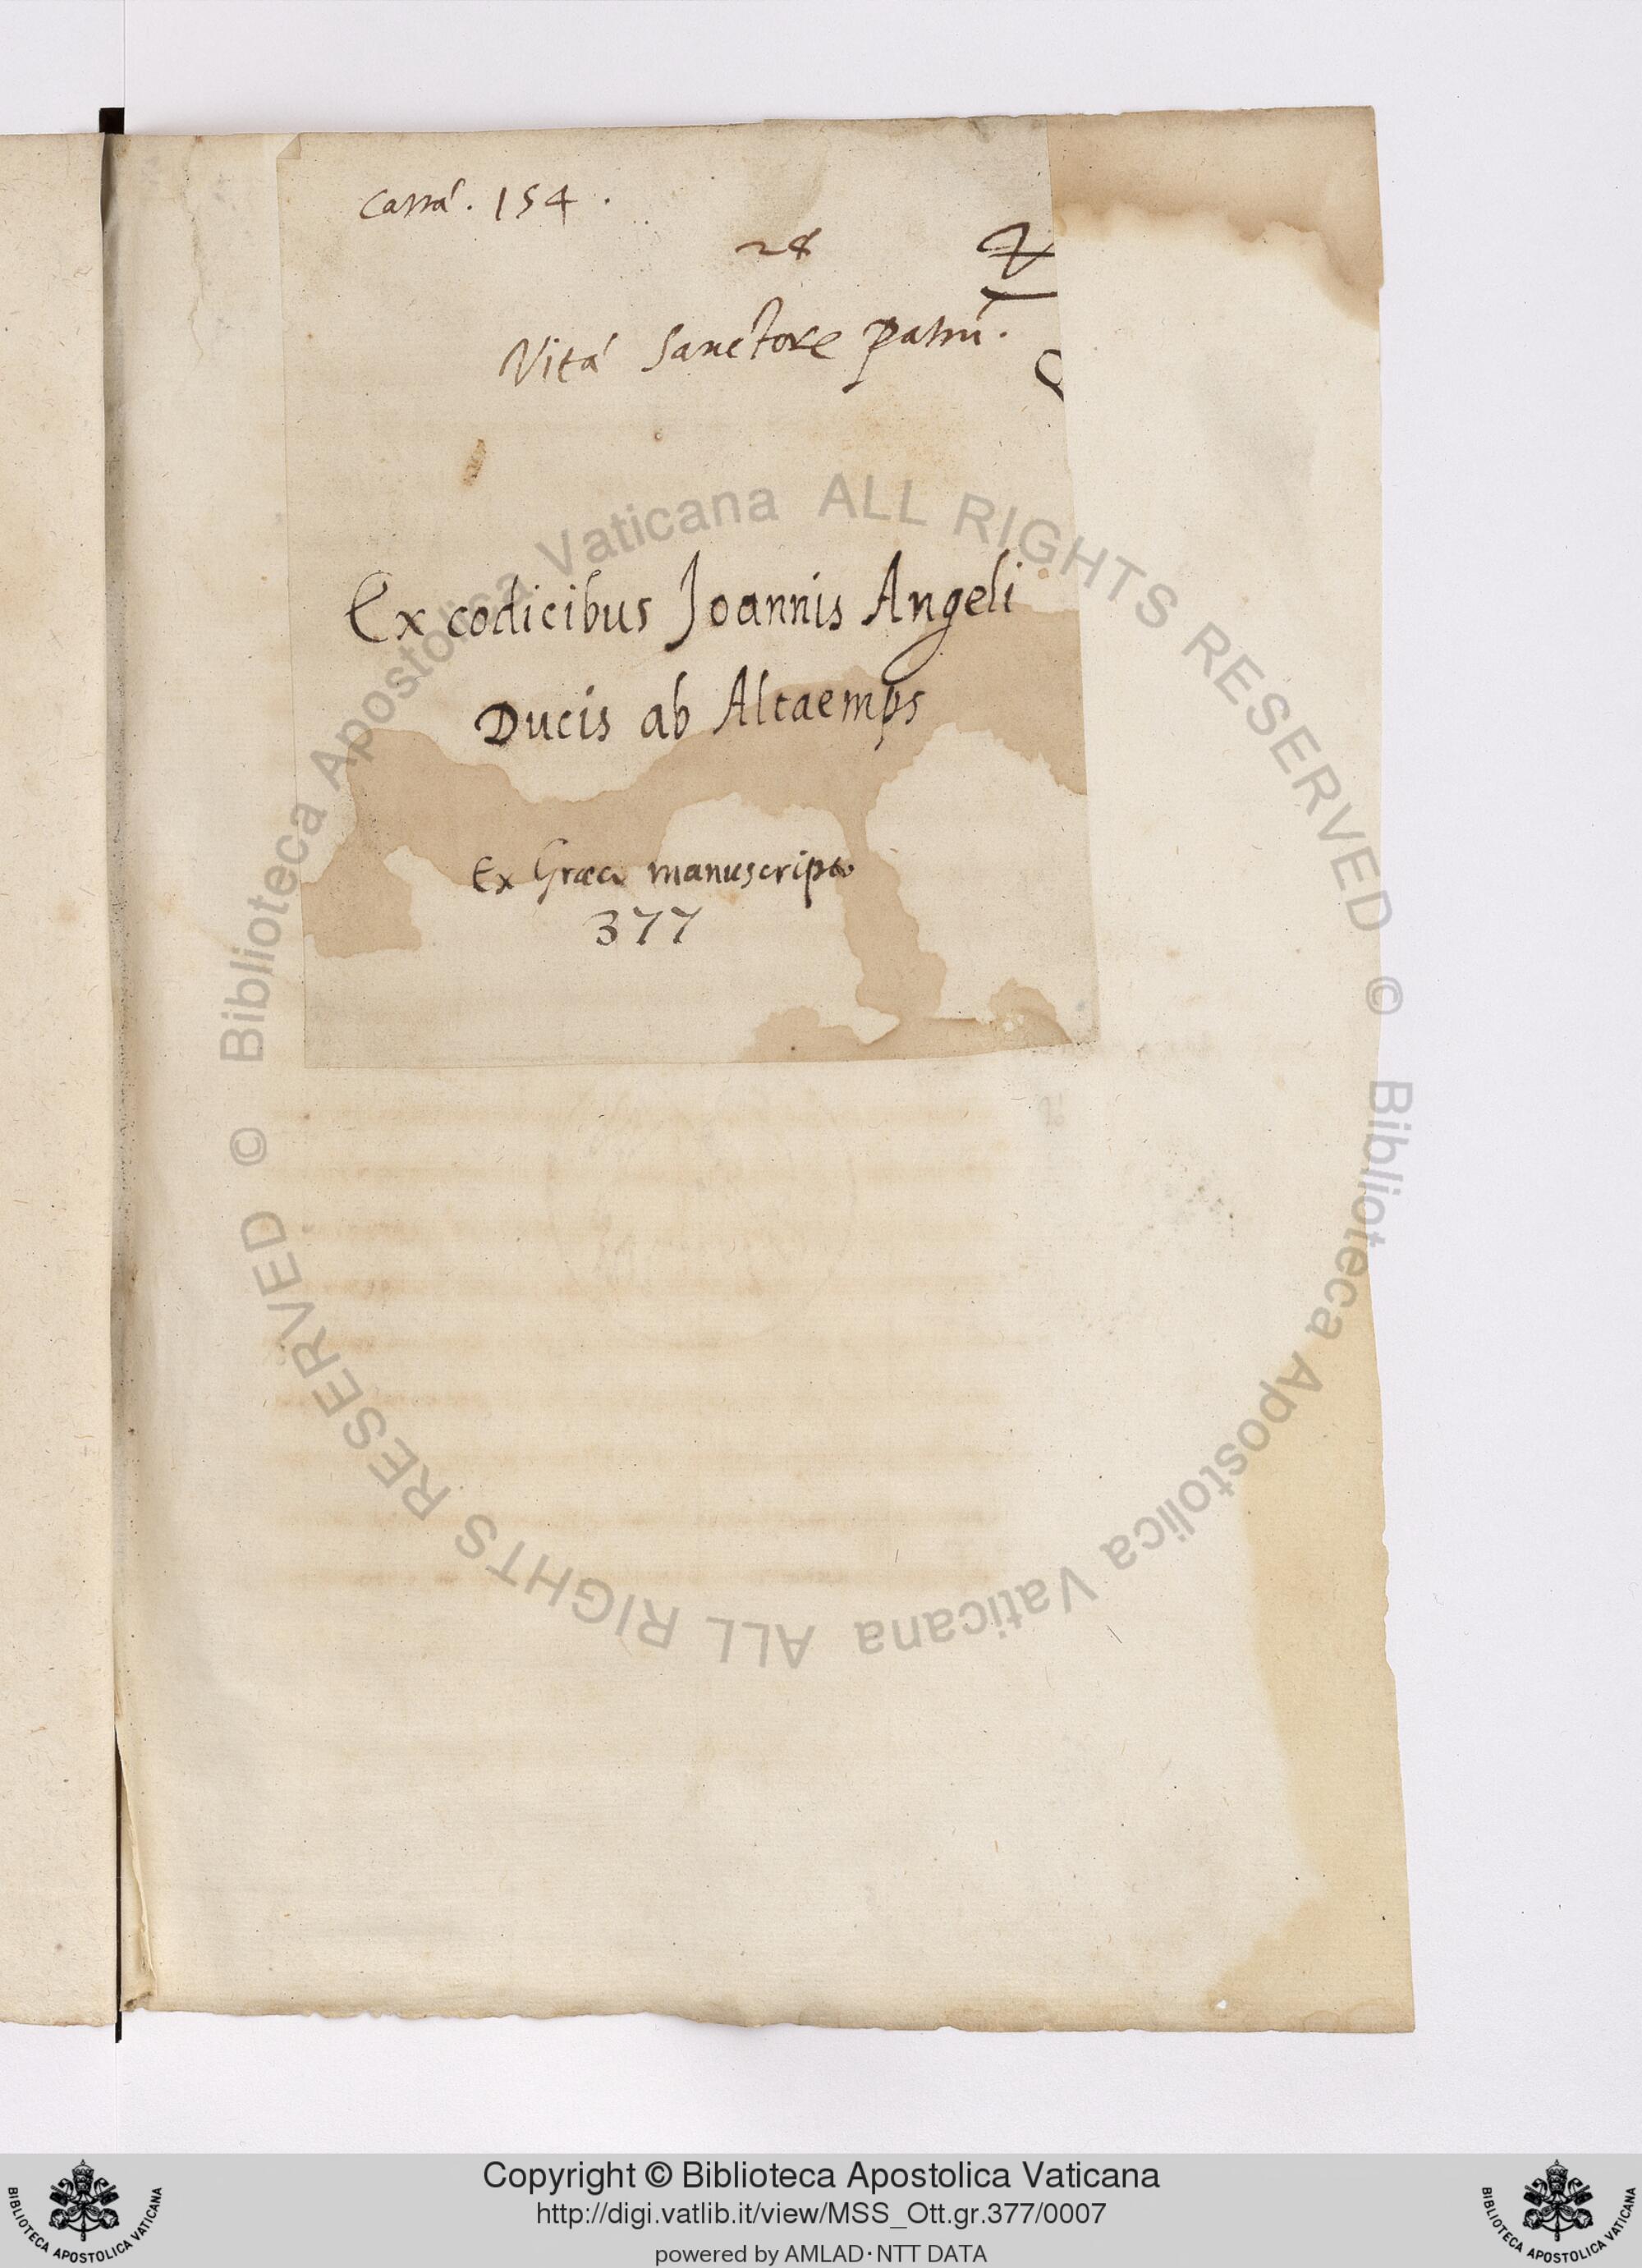 Carta'. 154.
28
Vita' Sanctore patrũ.
Ex codicibus Joannis Angeli
Ducis ab Altaemps
Ex Græco manuscripto
377
© Biblioteca Apostolica Vaticana ALL RIGHTS RESERVED
© Biblioteca Apostolica Vaticana ALL RIGHTS RESERVED
Copyright © Biblioteca Apostolica Vaticana
http://digi.vatlib.it/view/MSS_Ott.gr.377/0007
powered by AMLAD·NTT DATA
BIBLIOTECA APOSTOLICA VATICANA
BIBLIOTECA APOSTOLICA VATICANA